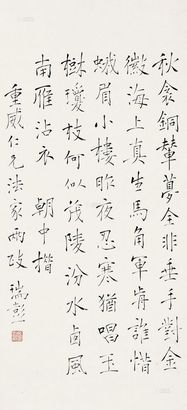 秋衾銅輦夢全非垂手對金
徽海上真生馬角軍誰惜
蛾眉小樓昨夜忍寒猶唱玉
樹瓊枝何似茂陵汾水卥風
南雁沾衣 朝中措
重威仁兄法家兩政 瑞彭